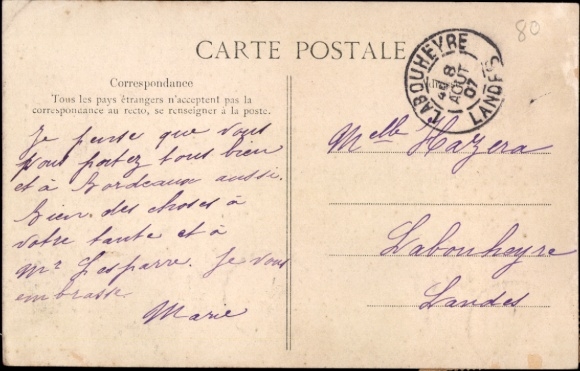 80
CARTE POSTALE
LABOUHEYRE
8
AOUT
07
LANDES
Correspondance
Tous les pays étrangers n'acceptent pas la
correspondance au recto, se renseigner à la poste.
Je pense que vous
vous portez tous bien
et à Bordeaux aussi.
Bien des choses à
votre tante et à
Mr Lesparre. Je vous
embrasse
Marie
Melle Hazera
Labouheyre
Landes